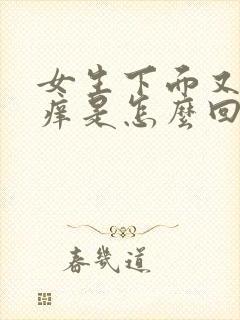 女生下面又
痒是怎麼回
春几道